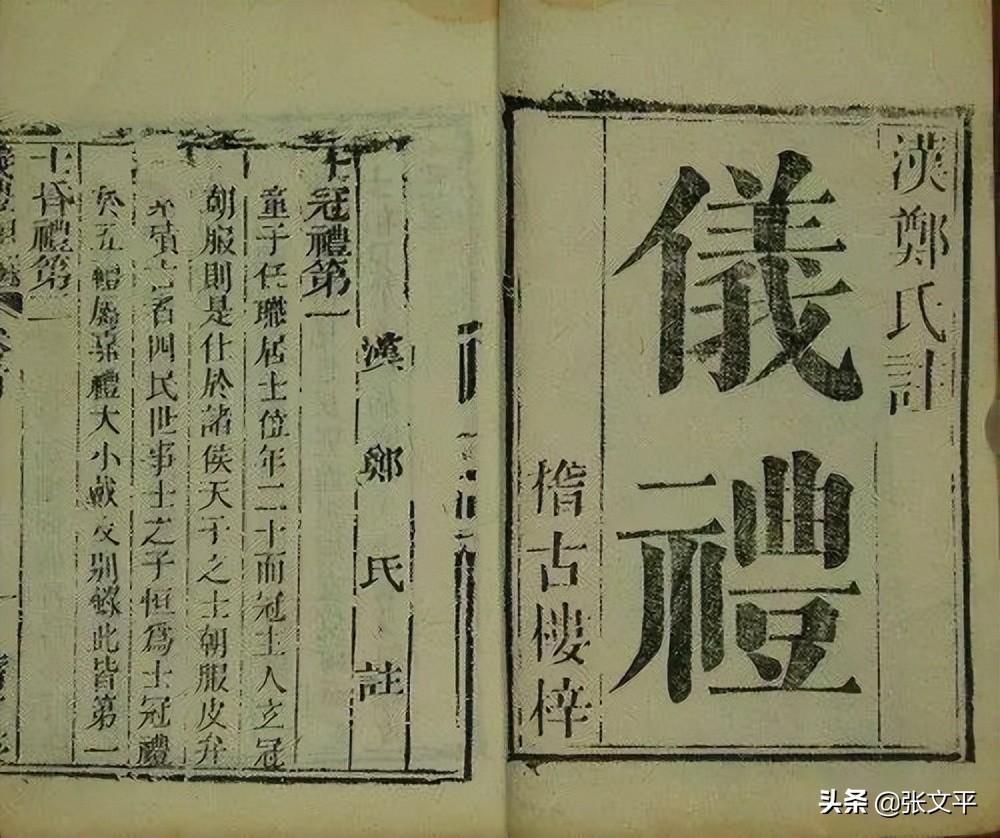 漢鄭氏註
儀禮
稽古樓梓
漢鄭氏註
士冠禮第一
童子任職居士位年二十而冠主人玄冠
朝服則是仕於諸侯天子之士朝服皮弁
素積古者四民世事士之子恒爲士冠禮
於五禮屬嘉禮大小戴及別錄此皆第一
士昏禮第二
头条 @张文平